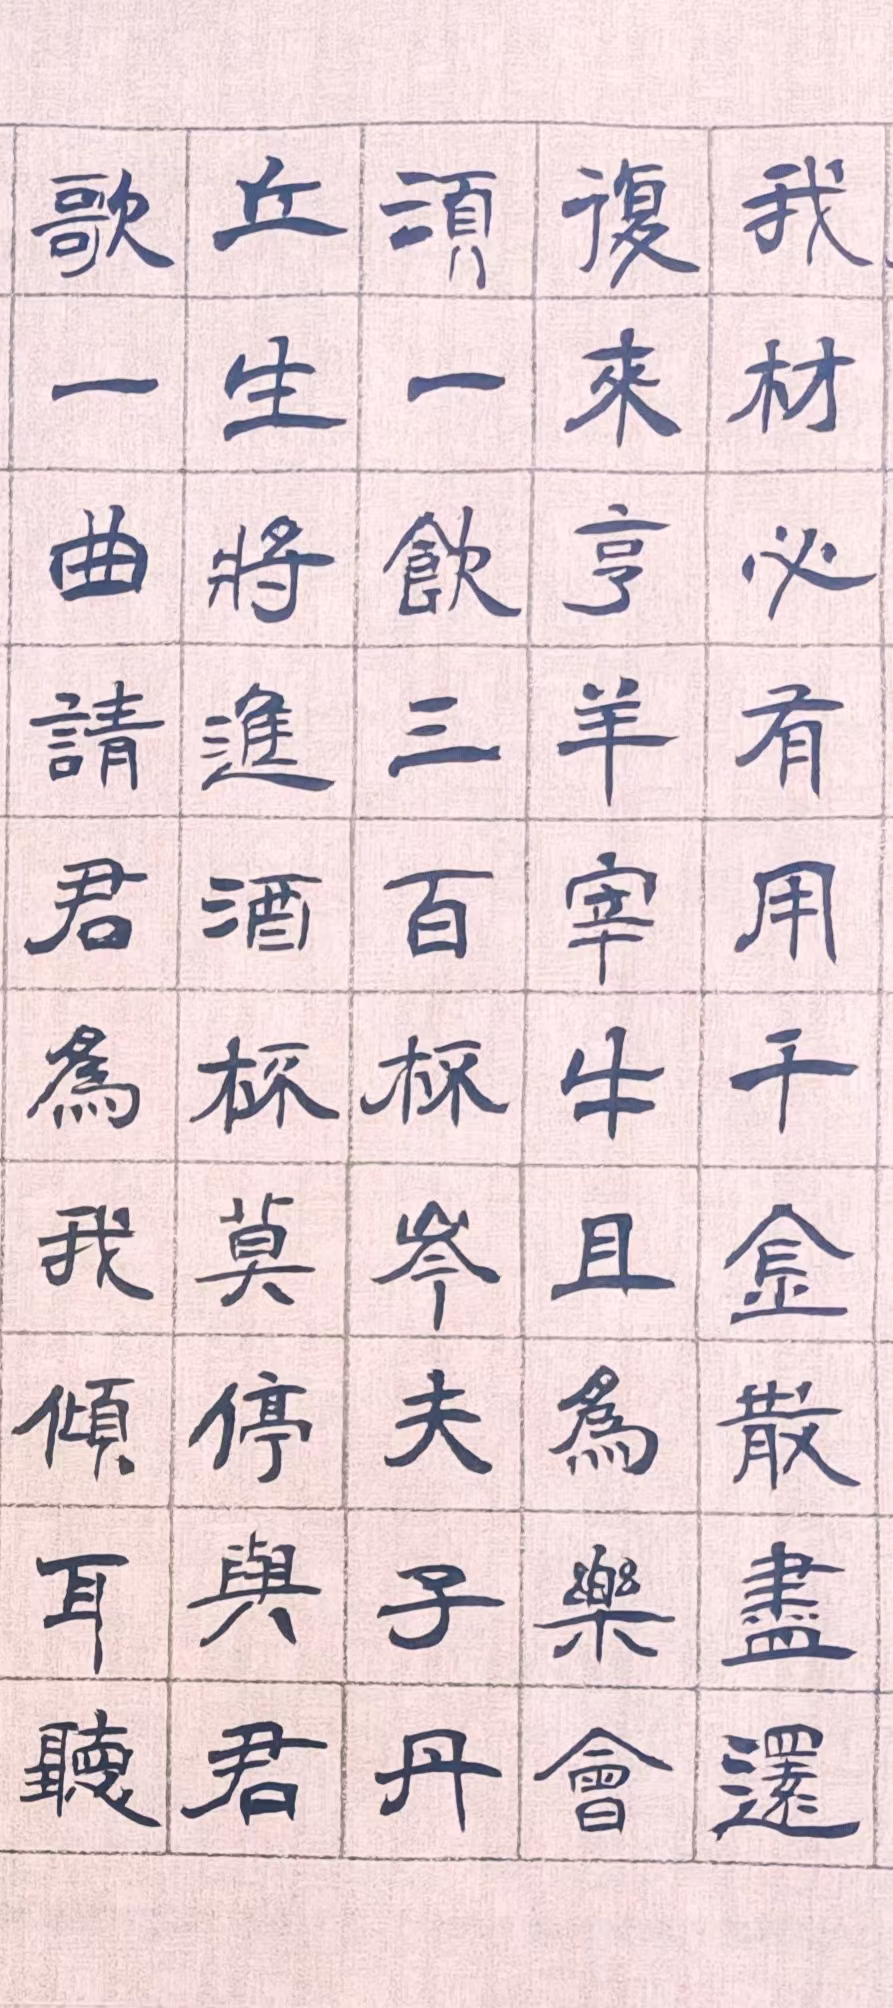 我材必有用千金散盡還
復來亨羊宰牛且為樂會
須一飲三百杯岑夫子丹
丘生將進酒杯莫停與君
歌一曲請君為我傾耳聽